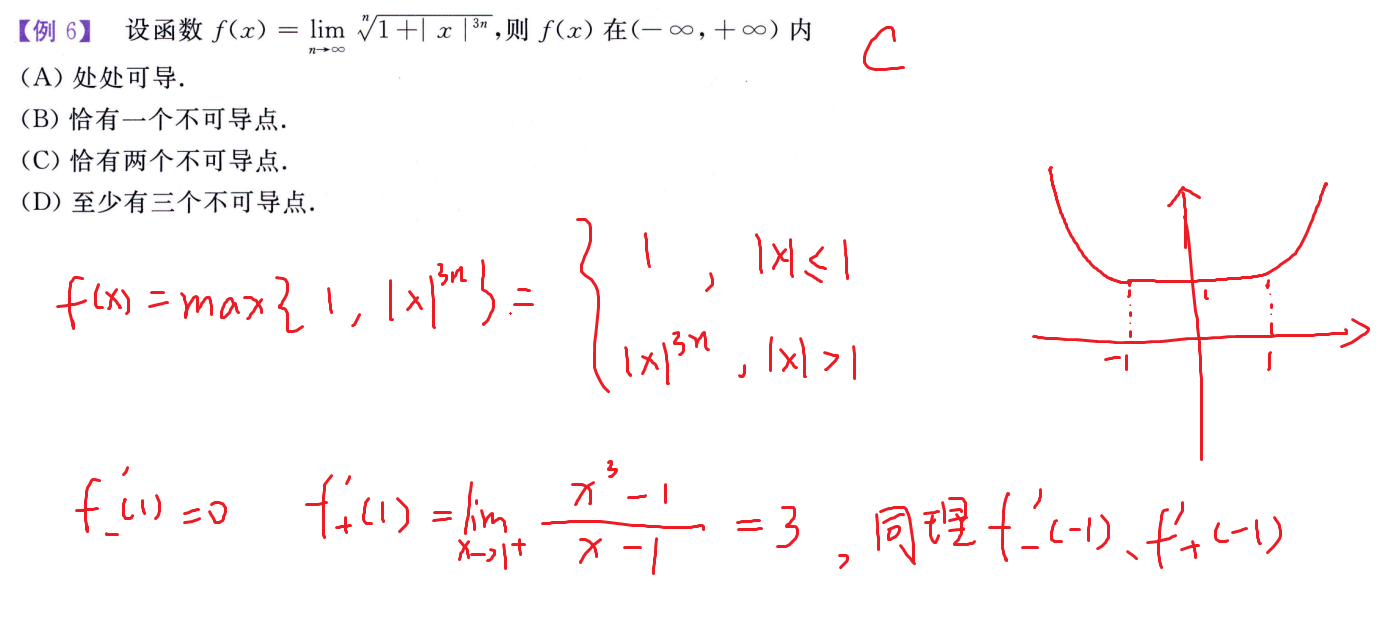 【例 6】 设函数 f(x) = lim_{n→∞} \sqrt[n]{1+|x|^{3n}},则 f(x) 在(−∞,+∞) 内
C
(A) 处处可导.
(B) 恰有一个不可导点.
(C) 恰有两个不可导点.
(D) 至少有三个不可导点.
f(x) = max{1, |x|^{3n}} = { 1 , |x| ≤ 1
|x|^{3n} , |x| > 1
1
-1 1
f'_-(1) = 0 f'_+(1) = lim_{x→1^+} \frac{x^3-1}{x-1} = 3 , 同理 f'_-(-1)、f'_+(-1)